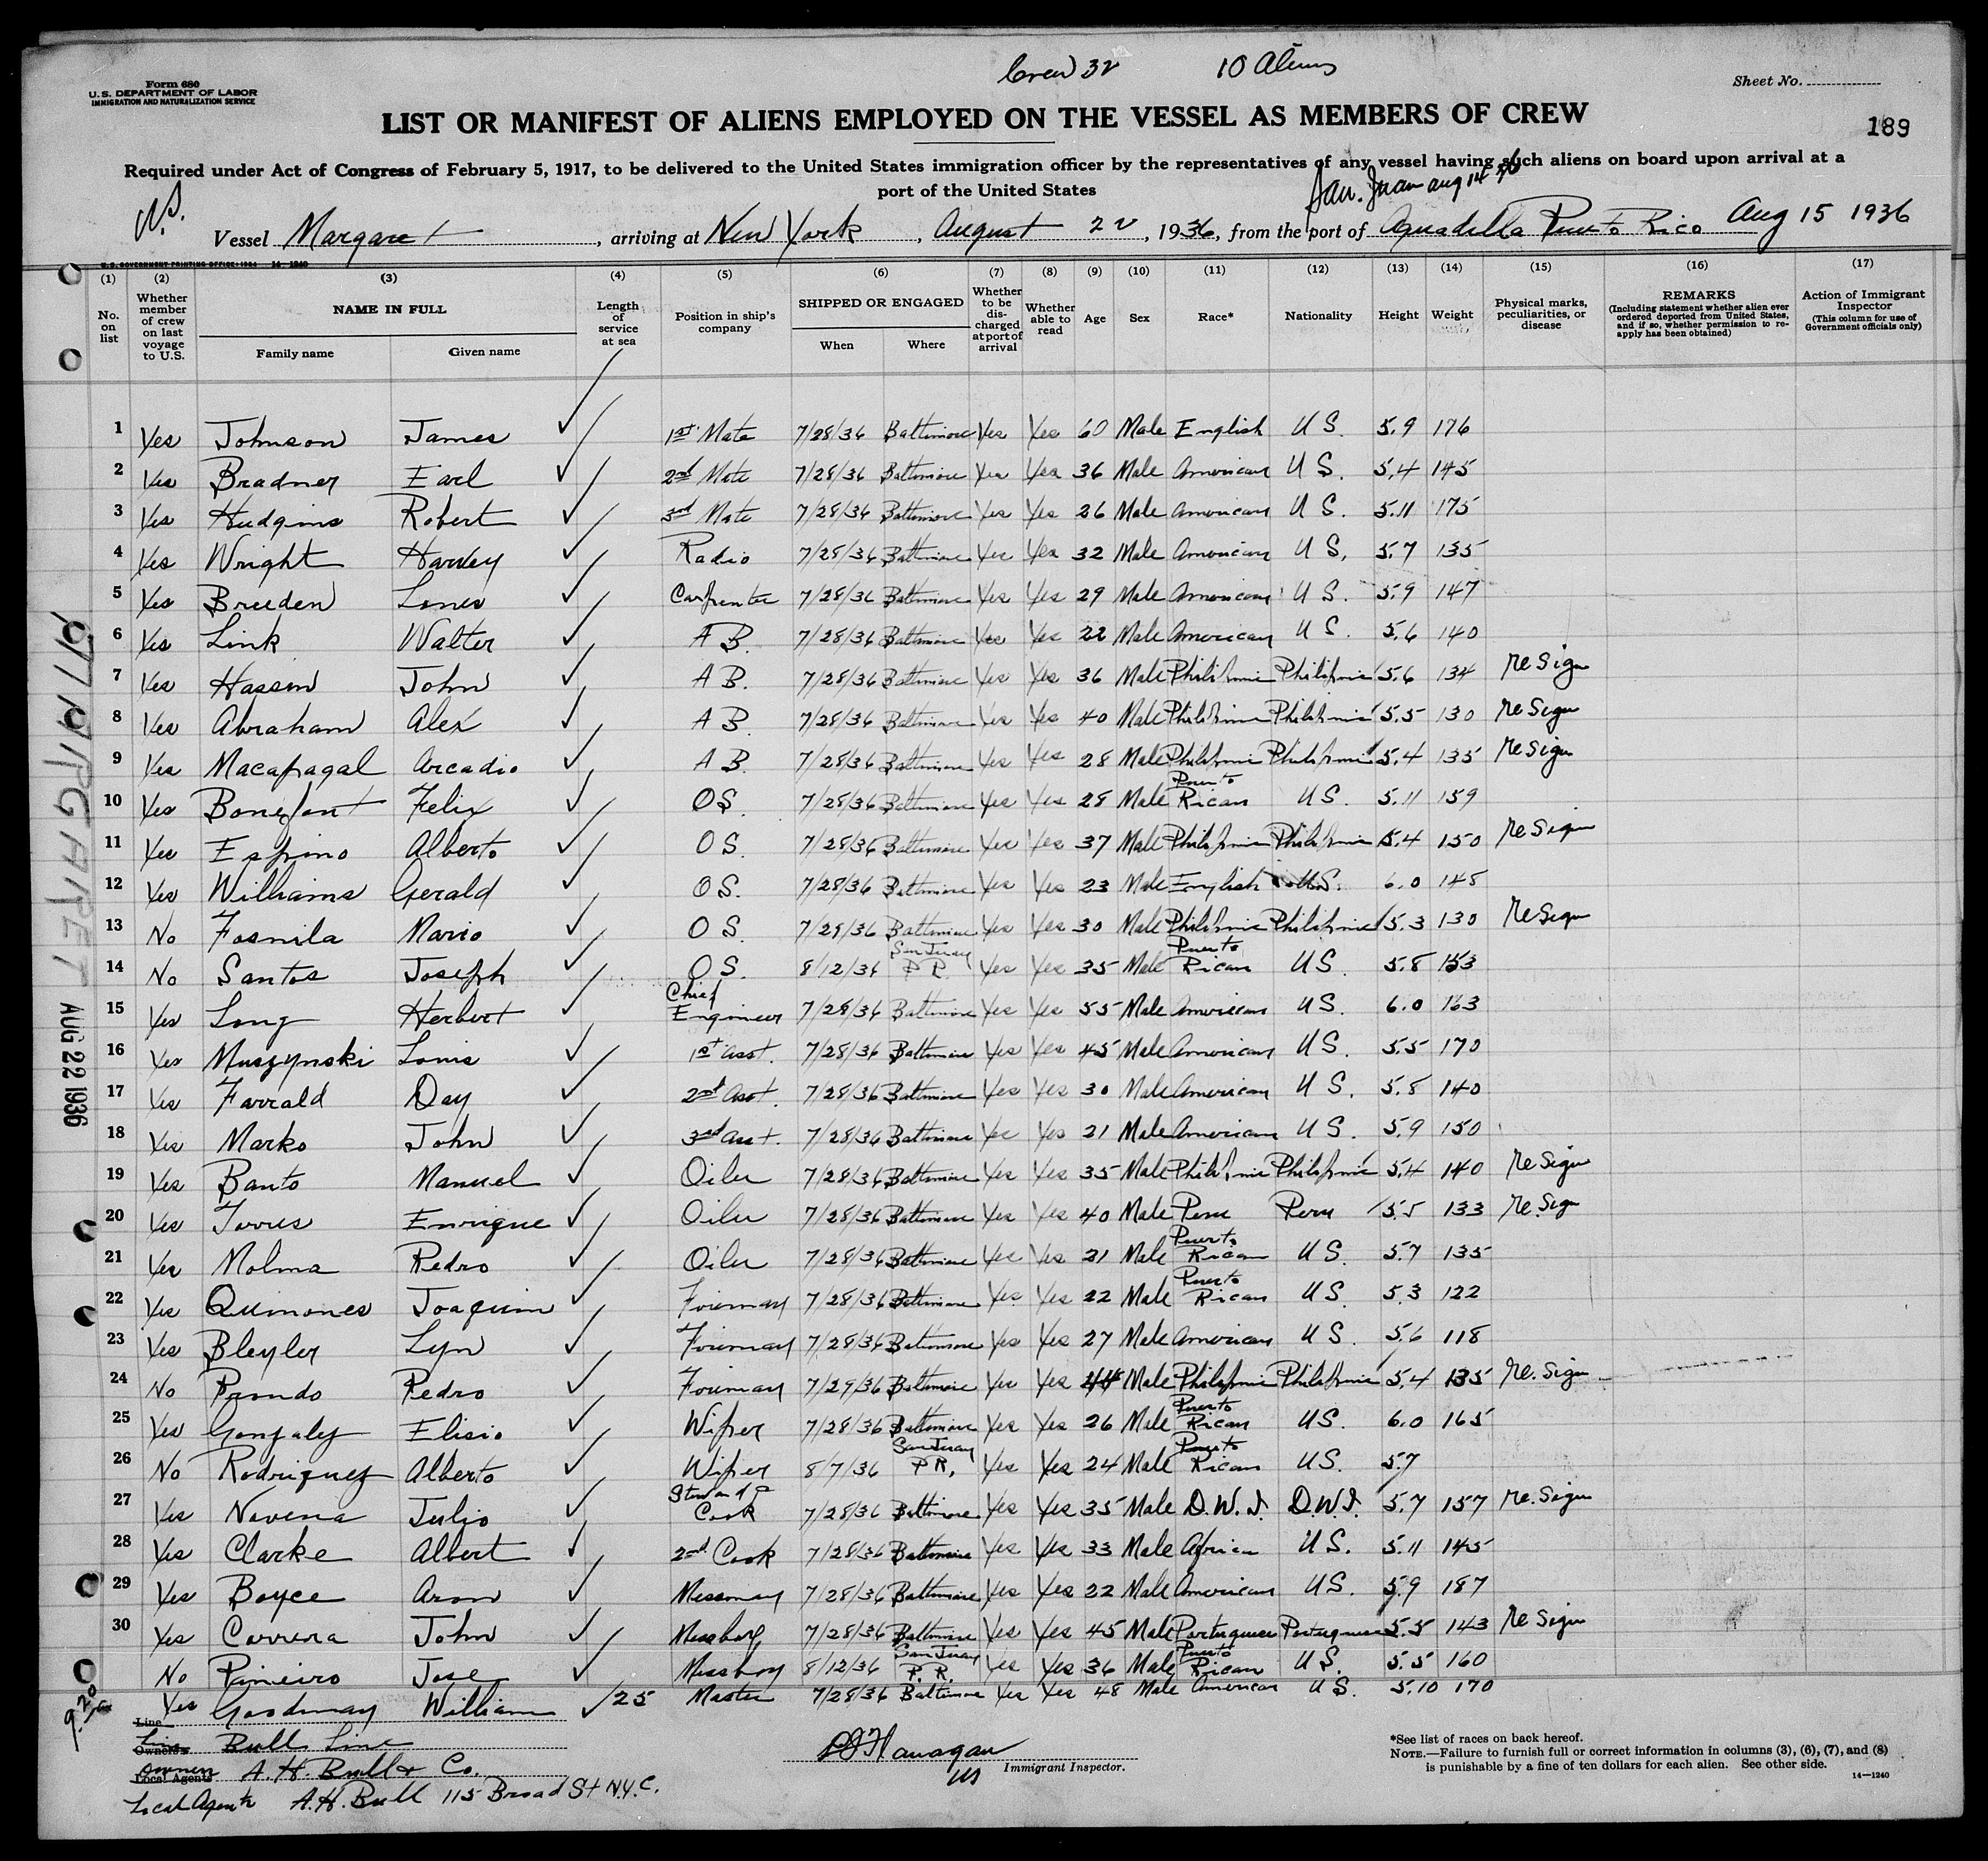 Crew 32 10 Aliens
Form 680
U.S. DEPARTMENT OF LABOR
IMMIGRATION AND NATURALIZATION SERVICE
Sheet No.
LIST OR MANIFEST OF ALIENS EMPLOYED ON THE VESSEL AS MEMBERS OF CREW
189
Required under Act of Congress of February 5, 1917, to be delivered to the United States immigration officer by the representatives of any vessel having such aliens on board upon arrival at a
port of the United States
San Juan Aug 14 36
Vessel Margaret, arriving at New York, August 22, 1936, from the port of Aguadilla Puerto Rico Aug 15 1936
U.S. GOVERNMENT PRINTING OFFICE: 1934 14-1240
(1) (2) (3) (4) (5) (6) (7) (8) (9) (10) (11) (12) (13) (14) (15) (16) (17)
No. on list
Whether member of crew on last voyage to U.S.
NAME IN FULL
Family name Given name
Length of service at sea
Position in ship's company
SHIPPED OR ENGAGED
When Where
Whether to be discharged at port of arrival
Whether able to read
Age Sex Race* Nationality Height Weight
Physical marks, peculiarities, or disease
REMARKS
(Including statement whether alien ever ordered deported from United States, and if so, whether permission to reapply has been obtained)
Action of Immigrant Inspector
(This column for use of Government officials only)
1 Yes Johnson James 1st Mate 7/28/36 Baltimore Yes Yes 60 Male English U S. 5.9 176
2 Yes Bradner Earl 2nd Mate 7/28/36 Baltimore Yes Yes 36 Male American U S. 5.4 145
3 Yes Hudgins Robert 3rd Mate 7/28/36 Baltimore Yes Yes 26 Male American U S. 5.11 175
4 Yes Wright Harvey Radio 7/28/36 Baltimore Yes Yes 32 Male American U S. 5.7 135
5 Yes Breeden Carpenter 7/28/36 Baltimore Yes Yes 29 Male American U S. 5.9 147
6 Yes Link Walter A B. 7/28/36 Baltimore Yes Yes 22 Male American U S. 5.6 140
7 Yes Hassen John A B. 7/28/36 Baltimore Yes Yes 36 Male Philippine Philippine 5.6 134 Re Sign
8 Yes Abraham Alex A B. 7/28/36 Baltimore Yes Yes 40 Male Philippine Philippine 5.5 130 Re Sign
9 Yes Macapagal Arcadio A B. 7/28/36 Baltimore Yes Yes 28 Male Philippine Philippine 5.4 135 Re Sign
10 Yes Bonefont Felix O S. 7/28/36 Baltimore Yes Yes 28 Male Puerto Rican U S. 5.11 159
11 Yes Espino Alberto O S. 7/28/36 Baltimore Yes Yes 37 Male Philippine Philippine 5.4 150 Re Sign
12 Yes Williams Gerald O S. 7/28/36 Baltimore Yes Yes 23 Male English U.S. 6.0 148
13 No Mario O S. 7/29/36 Baltimore Yes Yes 30 Male Philippine Philippine 5.3 130 Re Sign
14 No Santos Joseph O S. 8/12/36 San Juan P R. Yes Yes 35 Male Puerto Rican U S. 5.8 153
15 Yes Long Herbert Chief Engineer 7/28/36 Baltimore Yes Yes 55 Male American U S. 6.0 163
16 Yes Muszynski Louis 1st Asst. 7/28/36 Baltimore Yes Yes 45 Male American U S. 5.5 170
17 Yes Farrald Day 2nd Asst. 7/28/36 Baltimore Yes Yes 30 Male American U S. 5.8 140
18 Yes Marko John 3rd Asst. 7/28/36 Baltimore Yes Yes 21 Male American U S. 5.9 150
19 Yes Banto Manuel Oiler 7/28/36 Baltimore Yes Yes 35 Male Philippine Philippine 5.4 140 Re Sign
20 Yes Torres Enrique Oiler 7/28/36 Baltimore Yes Yes 40 Male Peru Peru 5.5 133 Re Sign
21 Yes Molma Pedro Oiler 7/28/36 Baltimore Yes Yes 21 Male Puerto Rican U S. 5.7 135
22 Yes Quinones Joaquin Fireman 7/28/36 Baltimore Yes Yes 22 Male Puerto Rican U S. 5.3 122
23 Yes Bleyler Lyn Fireman 7/28/36 Baltimore Yes Yes 27 Male American U S. 5.6 118
24 No Prondo Pedro Fireman 7/29/36 Baltimore Yes Yes 44 Male Philippine Philippine 5.4 135 Re. Sign
25 Yes Gonzalez Elisio Wiper 7/28/36 Baltimore Yes Yes 26 Male Puerto Rican U S. 6.0 165
26 No Rodriguez Alberto Wiper 8/7/36 San Juan P R. Yes Yes 24 Male Puerto Rican U S. 5.7
27 Yes Novena Julio Steward & Cook 7/28/36 Baltimore Yes Yes 35 Male D.W.I. D.W.I. 5.7 157 Re. Sign
28 Yes Clarke Albert 2nd Cook 7/28/36 Baltimore Yes Yes 33 Male African U S. 5.11 145
29 Yes Boyce Aron Messman 7/28/36 Baltimore Yes Yes 22 Male American U S. 5.9 187
30 Yes Correra John Messboy 7/28/36 Baltimore Yes Yes 45 Male Portuguese Portuguese 5.5 143 Re Sign
No Pineiro Jose Messboy 8/12/36 San Juan P. R. Yes Yes 36 Male Puerto Rican U S. 5.5 160
Yes Goodman William 25 Master 7/28/36 Baltimore Yes Yes 48 Male American U S. 5.10 170
Line
Line Bull Line
Owners
Owners A. H. Bull & Co.
Local Agents
Local Agents A. H. Bull 115 Broad St N.Y.C.
Flanagan
Immigrant Inspector.
*See list of races on back hereof.
NOTE.—Failure to furnish full or correct information in columns (3), (6), (7), and (8)
is punishable by a fine of ten dollars for each alien. See other side.
14-1240
MARGARET AUG 22 1936